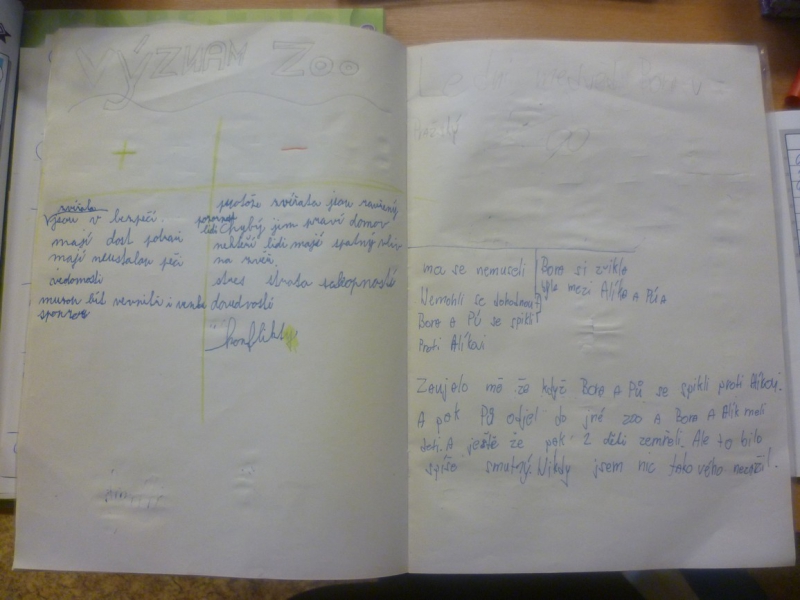 VÝZNAM ZOO
+
−
zvířata
jsou v bezpečí.
mají dost potravi
mají neustalou péči
vědomosti
musou být vevnitř i venku
sponzor
protože zvířata jsou
lidi chybý jim pravý domov
nekteří lidi mají spatny vliv
na zvíř.
stres ztrata schopností
dovedností
konflikty
Lední medvědi Bora
ma se nemuseli
Nemohli se dohodnou
Bora a Pú se spikli
Proti Alíkovi
Bora si zvikla
byla mezi Alíka a Púa
Zaujalo mě že když Bora a Pů se spikli proti Alíkovi.
A pak Pů odjel do jné zoo a Bora a Alík měli
děti. A ještě že pak 2 děti zemřeli. Ale to bilo
spíše smutný. Nikdy jsem nic takového